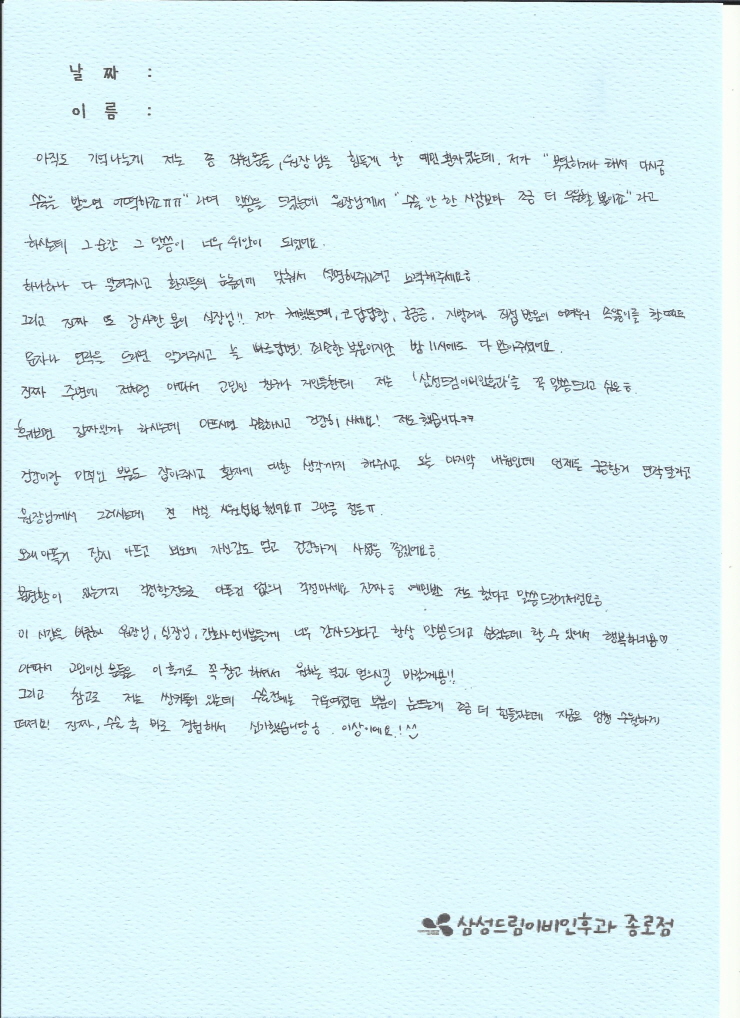 날 짜 :
이 름 :
아직도 기억나는게 저는 좀 직원분들, 원장님을 힘들게 한 예민환자였는데. 저가 "부딪히거나 해서 다시금
수술을 받으면 어떡하죠ㅠㅠ" 라며 말씀을 드렸는데 원장님께서 "수술 안 한 사람보다 조금 더 위험할 뿐이죠" 라고
하시는데 그 순간 그 말씀이 너무 위안이 되었어요.
하나하나 다 알려주시고 환자들의 눈높이에 맞춰서 설명해주시려고 노력해주세요
그리고 진짜 또 감사한 분이 실장님!! 저가 코답답함, 궁금증, 지방거주 직접 방문이 어려워서 할때도
문자나 연락을 드리면 알려주시고 늘 빠른답변! 죄송한 부분이지만 밤 11시에도 다 받아주셨어요.
진짜 주변에 저처럼 아파서 고민인 친구나 지인들한테 저는 '삼성드림이비인후과'를 꼭 말씀드리고 싶어요
후기보면 갈까말까 하시는데 아프시면 수술하시고 건강히 사세요! 저도 했습니다ㅋㅋ
건강이랑 미적인 부분도 잡아주시고 환자에 대한 생각까지 해주시고 오늘 마지막 내원인데 언제든 궁금한거 연락달라고
원장님께서 그러시는데 전 사실 시원섭섭 했어요ㅠ 그만큼 정든ㅠ
오래 아플거 잠시 아프고 뇌에 자신감도 얻고 건강하게 사셨음 좋겠어요
불편함이 있는가지 걱정할정도로 아픈건 없으니 걱정마세요 진짜 예민보스 저도 했다고 말씀드린거처럼요
이 시간을 비롯하여 원장님, 실장님, 간호사 언니분들께 너무 감사드린다고 항상 말씀드리고 싶었는데 할 수 있어서 행복하네용♡
아파서 고민이신 분들은 이 후기로 꼭 참고 하셔서 원하는 결과 얻으시길 바랄게용!!
그리고 참고로 저는 쌍커풀이 있는데 수술전에는 부분이 눈뜨는게 조금 더 힘들었는데 지금은 엄청 수월하게
떠져요! 진짜, 수술 후 바로 경험해서 신기했습니당 이상이에요.! ^^
삼성드림이비인후과 종로점